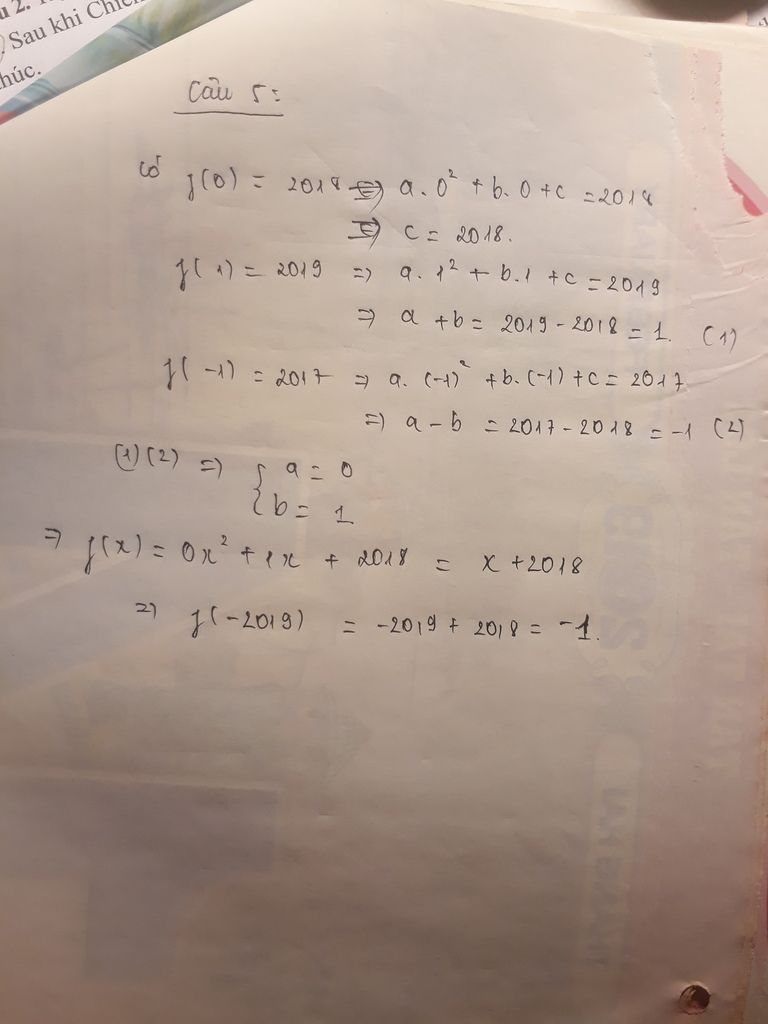 Sau khi
húc.
Câu 5:
Có f(0) = 2018 => a.0² + b.0 + c = 2018
=> c = 2018.
f(1) = 2019 => a.1² + b.1 + c = 2019
=> a + b = 2019 - 2018 = 1. (1)
f(-1) = 2017 => a.(-1)² + b.(-1) + c = 2017
=> a - b = 2017 - 2018 = -1 (2)
(1)(2) => { a = 0
b = 1
=> f(x) = 0x² + 1x + 2018 = x + 2018
=> f(-2019) = -2019 + 2018 = -1.